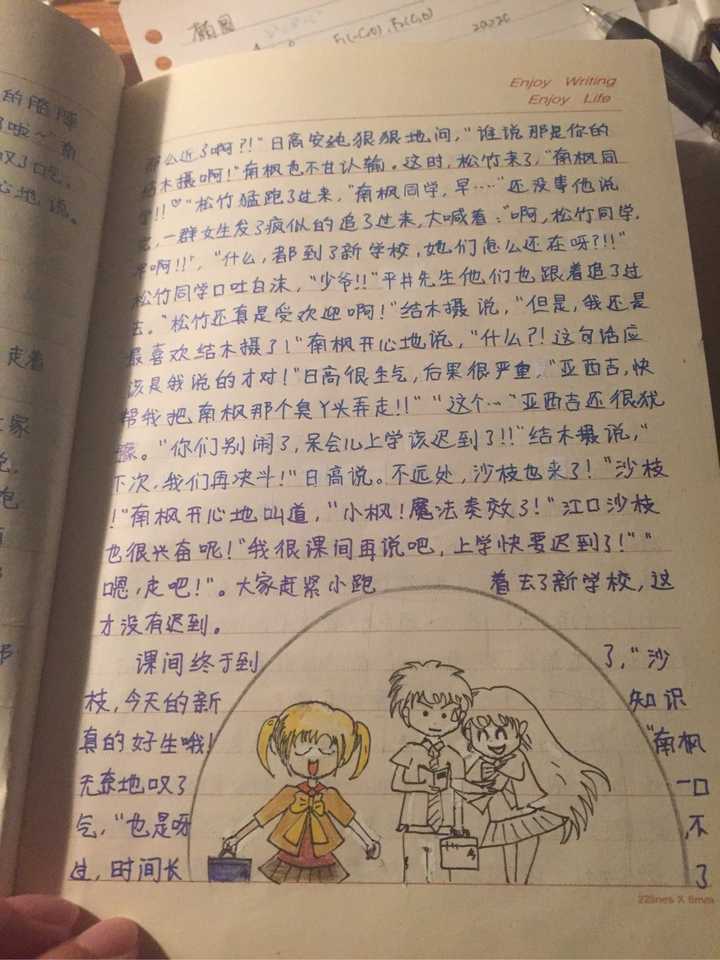 颜图
F₁(-C,0), F₂(C,0)
Enjoy Writing
Enjoy Life
的胳膊
了啦~"南
叹了口气
心地说。
走着
那么近了啊?!"日高安纯狠狠地问,"谁说那是你的
结木摄啊!"南枫也不甘认输。这时,松竹来了,"南枫同
学!!♡"松竹猛跑了过来,"南枫同学,早……"还没事他说
完,一群女生发了疯似的追了过来,大喊着:"啊,松竹同学,
早啊!!","什么,都到了新学校,她们怎么还在呀?!!"
松竹同学口吐白沫,"少爷!!"平井先生他们也跟着追了过
去。"松竹还真是受欢迎啊!"结木摄说,"但是,我还是
最喜欢结木摄了!"南枫开心地说,"什么?!这句话应
该是我说的才对!"日高很生气,后果很严重,"亚西吉,快
帮我把南枫那个臭丫头弄走!!""这个…"亚西吉还很犹
豫。"你们别闹了,呆会儿上学该迟到了!!"结木摄说,"
下次,我们再决斗!"日高说。不远处,沙枝也来了!"沙枝
!"南枫开心地叫道,"小枫!魔法奏效了!"江口沙枝
也很兴奋呢!"我很课间再说吧,上学快要迟到了!""
嗯,走吧!"。大家赶紧小跑着去了新学校,这
才没有迟到。
课间终于到了,"沙
枝,今天的新知识
真的好生哦!"南枫
无奈地叹了一口
气,"也是呀,不
过,时间长了
22lines X 8mm